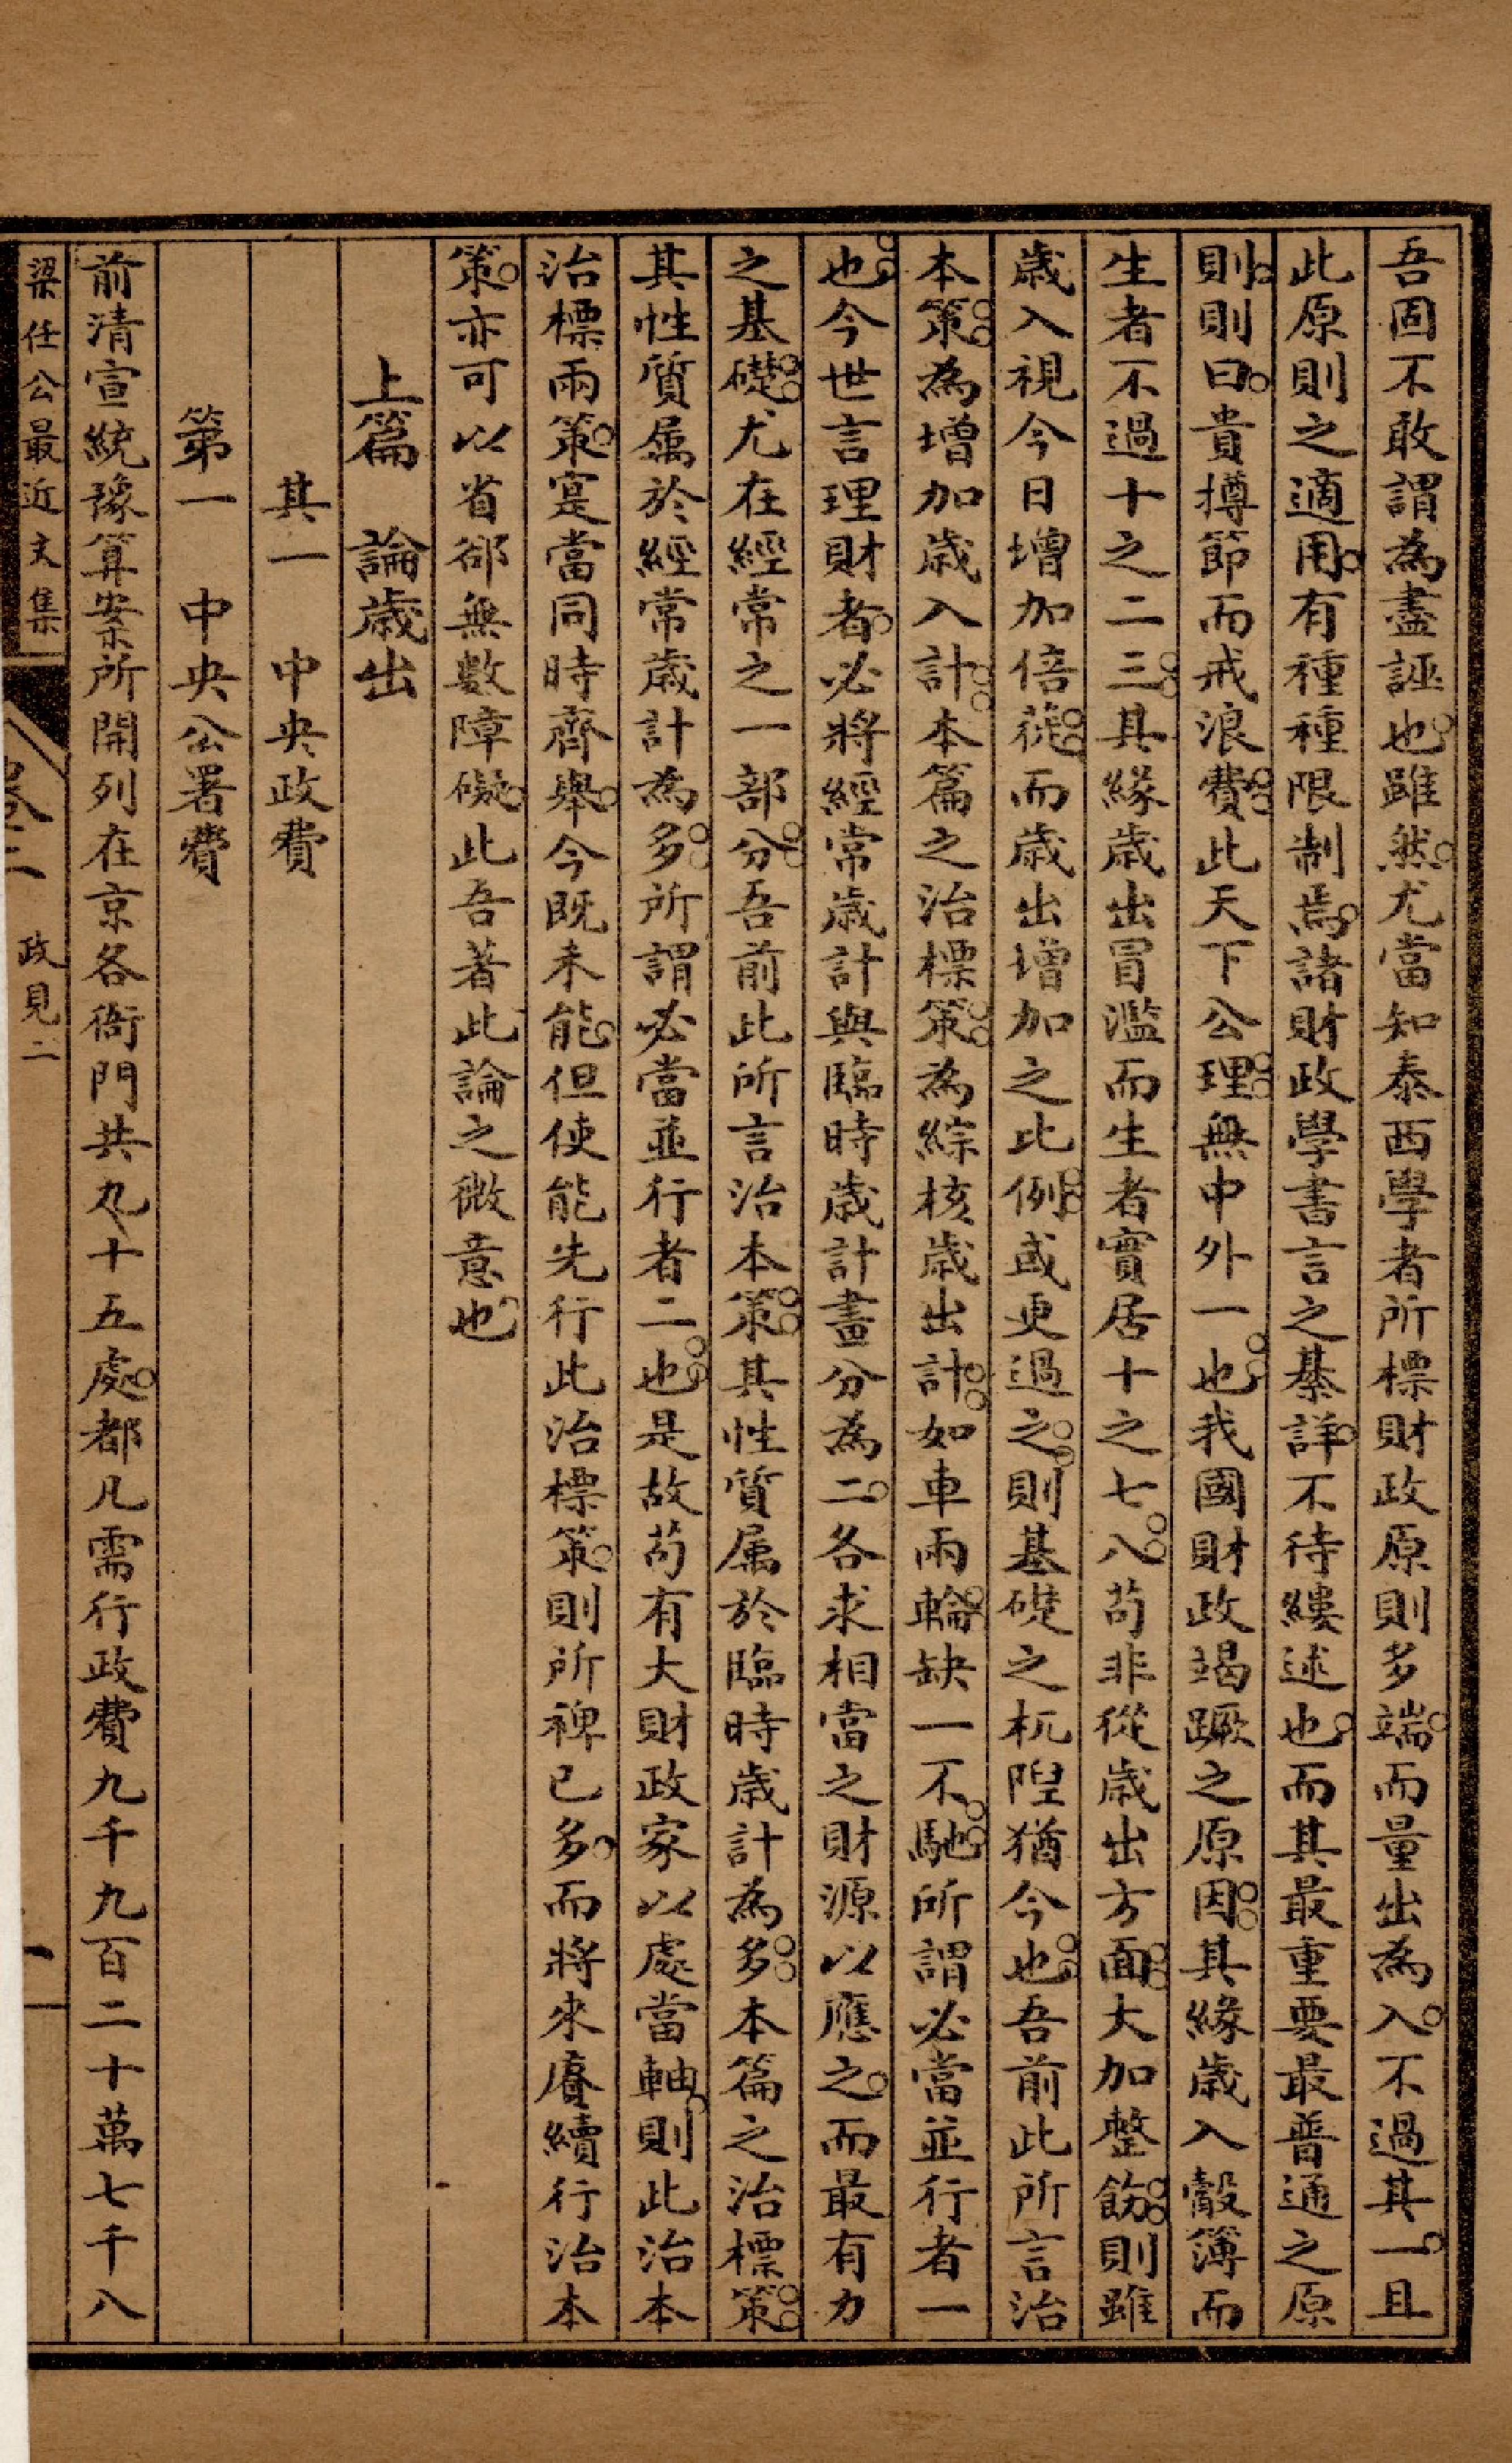 吾固不敢謂為盡誣也雖然尤當知泰西學者所標財政原則多端而量出為入不過其一且
此原則之適用有種種限制焉諸財政學書言之綦詳不待縷述也而其最重要最普通之原
則則曰貴撙節而戒浪費此天下公理無中外一也我國財政竭蹶之原因其緣歲入觳簿而
生者不過十之二三其緣歲出冒濫而生者實居十之七八苟非從歲出方面大加整飭則雖
歲入視今日增加倍蓰而歲出增加之比例或更過之則基礎之杌隉猶今也吾前此所言治
本策為增加歲入計本篇之治標策為綜核歲出計如車兩輪缺一不馳所謂必當並行者一
也今世言理財者必將經常歲計與臨時歲計畫分為二各求相當之財源以應之而最有力
之基礎尤在經常之一部分吾前此所言治本策其性質属於臨時歲計為多本篇之治標策
其性質属於經常歲計為多所謂必當並行者二也是故苟有大財政家以處當軸則此治本
治標兩策寔當同時齊舉今既未能但使能先行此治標策則所裨已多而將來賡續行治本
策亦可以省郤無數障礙此吾著此論之微意也
上篇　論歲出
其一　中央政費
第一　中央公署費
前清宣統豫算案所開列在京各衙門共九十五處都凡需行政費九千九百二十萬七千八
梁任公最近文集　政見二　一